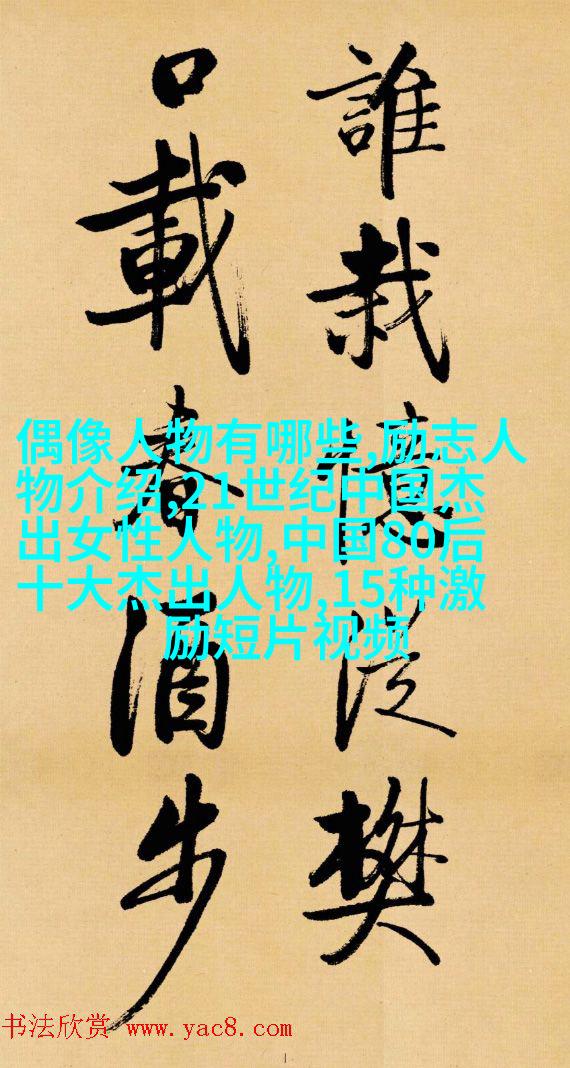 誰栽憶從樊
口載春酒步
偶像人物有哪些,励志人
物介绍,21世纪中国杰
出女性人物,中国80后
十大杰出人物,15种激
励短片视频
书法欣赏 www.yac8.com